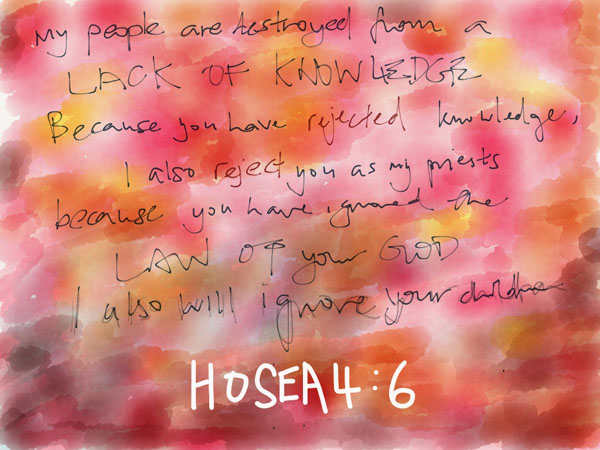 My people are destroyed from a
LACK OF KNOWLEDGE
Because you have rejected knowledge,
I also reject you as my priests
because you have ignored the
LAW OF your GOD
I also will ignore your children
HOSEA 4:6